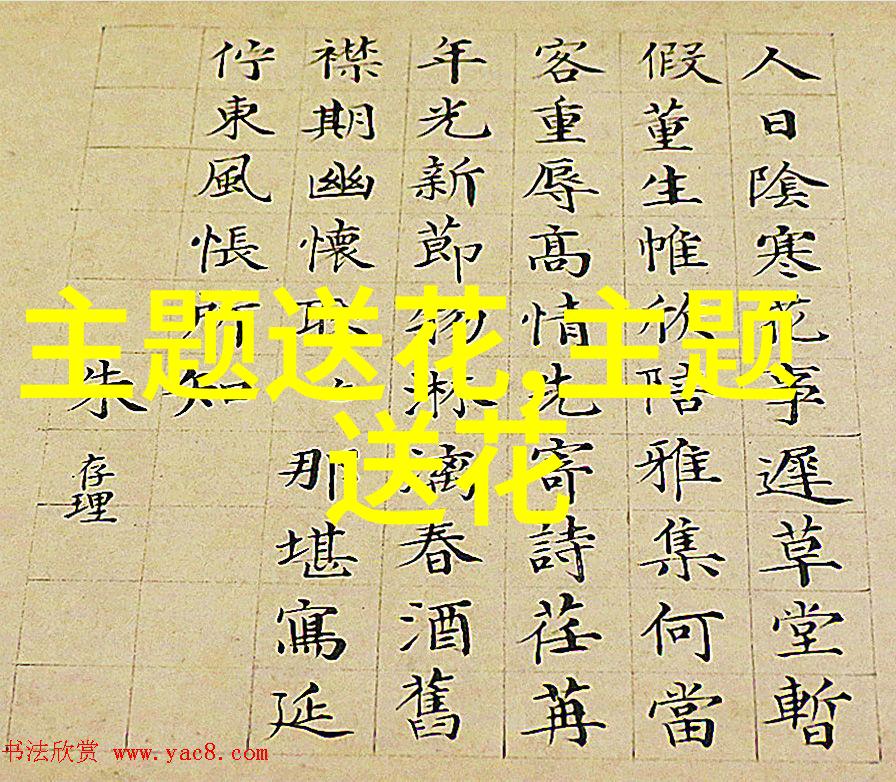 人日陰寒花事遲草堂暫
假董生帷欣陪雅集何當
客重辱高情先寄詩荏苒
年光新節物淋漓春酒舊
襟期幽懷那堪寫延
佇東風悵所知
朱存理
主题送花,主题
送花
书法欣赏 www.yac8.com